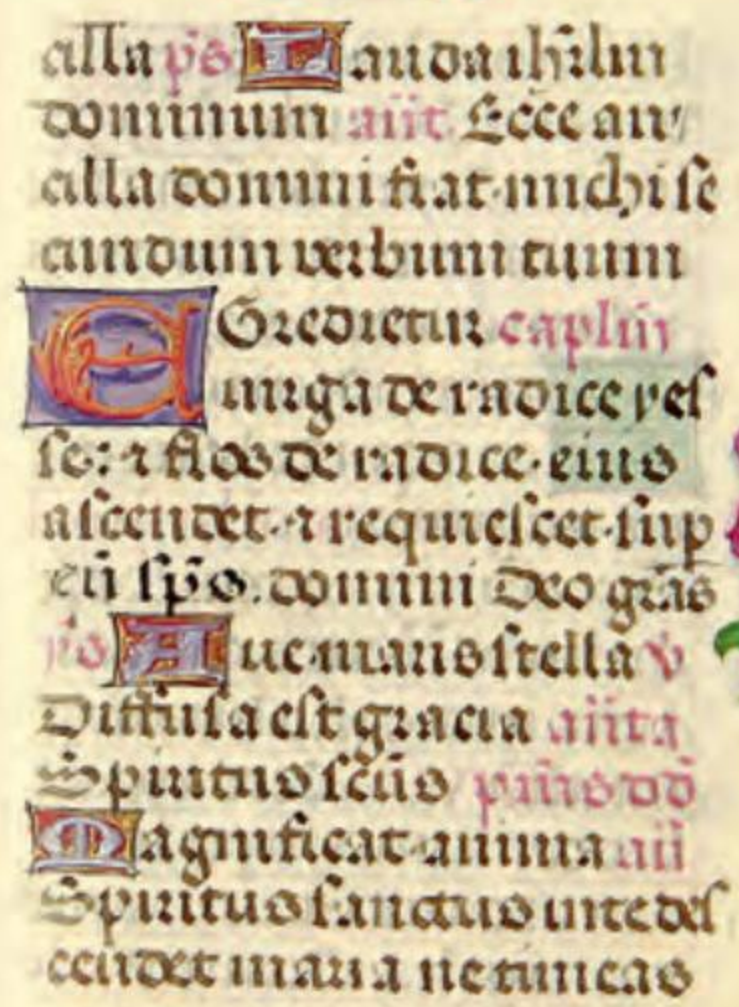 cilla p̄s Lauda ihr̄lm
dominum añt. Ecce an
cilla domini fiat michi se
cundum verbum tuum
EGredietur capl̄m
uirga de radice yes
se: ⁊ flos de radice eius
ascendet. ⁊ requiescet sup
eū sp̄s. domini Deo gr̄as
Aue maris stella v̄
Diffusa est gracia añta
Spiritus sc̄us
Magnificat anima añ
Spiritus sanctus in te des
cendet maria ne timeas